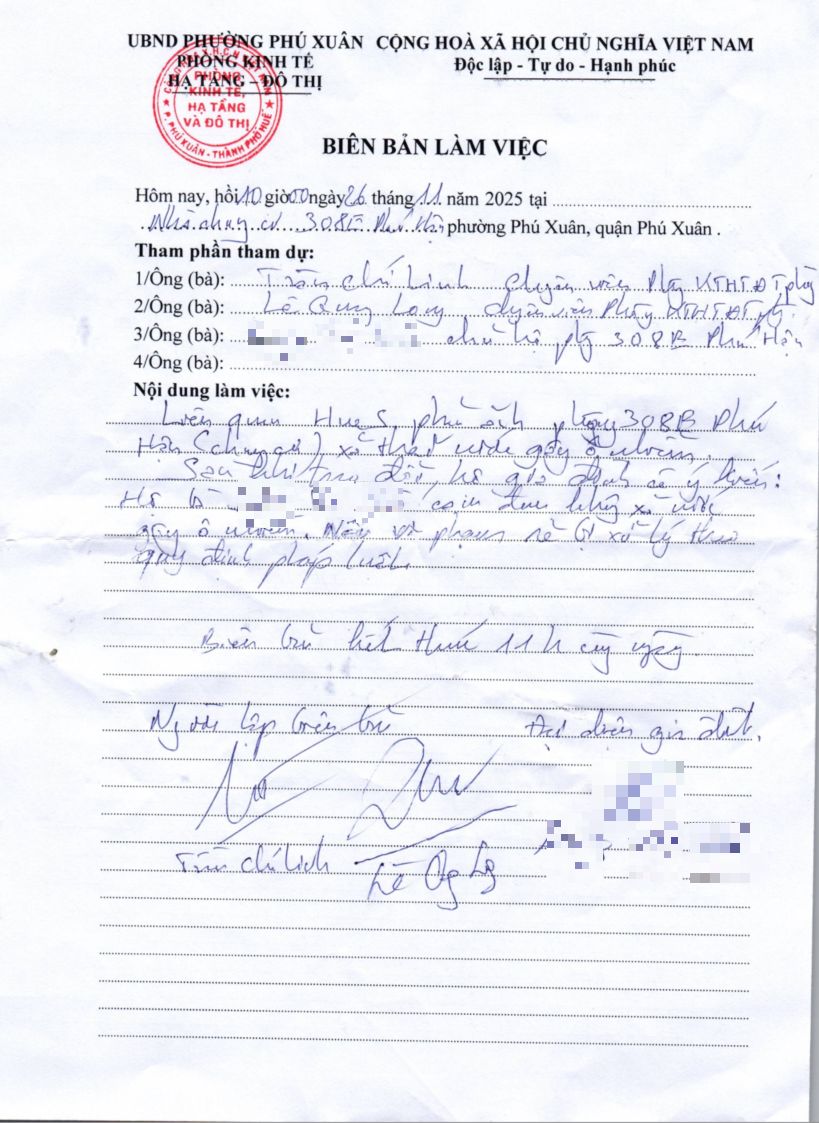 UBND PHƯỜNG PHÚ XUÂN CỘNG HOÀ XÃ HỘI CHỦ NGHĨA VIỆT NAM
PHÒNG KINH TẾ Độc lập - Tự do - Hạnh phúc
HẠ TẦNG – ĐÔ THỊ
PHÒNG
KINH TẾ,
HẠ TẦNG
VÀ ĐÔ THỊ
P. PHÚ XUÂN - THÀNH PHỐ HUẾ
BIÊN BẢN LÀM VIỆC
Hôm nay, hồi 10 giờ 00 ngày 26 tháng 11 năm 2025 tại
Nhà chung cư 308E Phú Hậu phường Phú Xuân, quận Phú Xuân .
Tham phần tham dự:
1/Ông (bà): Trần chí Linh chuyên viên Phòng KTHTĐT
2/Ông (bà): Lê Quang Long, chuyên viên Phòng KTHTĐT
3/Ông (bà): chủ hộ phòng 308E Phú Hậu
4/Ông (bà):
Nội dung làm việc:
Liên quan Hue S phản ánh phòng 308E Phú
Hậu (chung cư) xả thải nước gây ô nhiễm.
Sau khi trao đổi, hộ gia đình có ý kiến:
Hộ bà cam đoan không xả nước
gây ô nhiễm. Nếu vi phạm sẽ bị xử lý theo
quy định pháp luật.
Biên bản kết thúc 11h cùng ngày.
Người lập biên bản Đại diện gia đình.
Lê